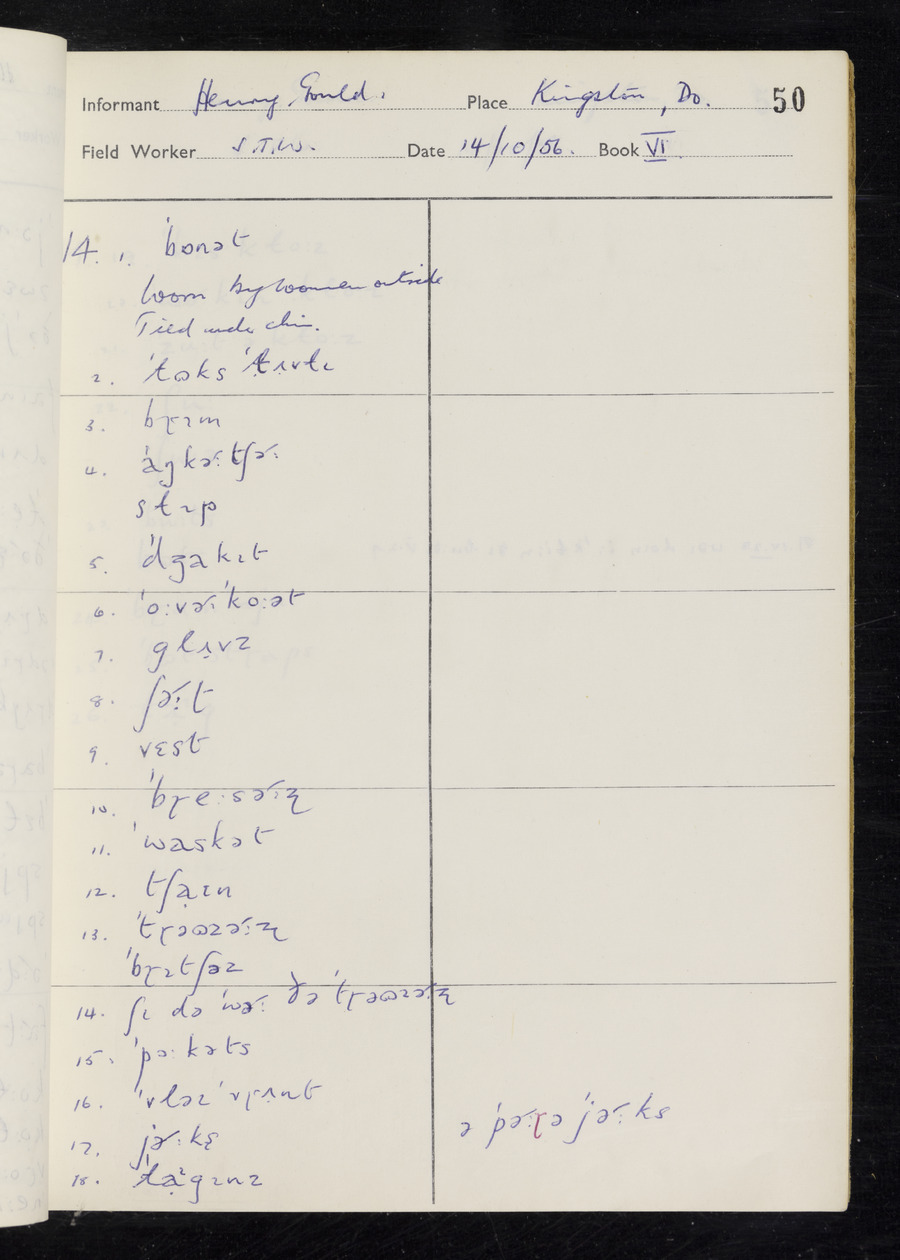 Informant Henry Gould. Place Kingston, Do. 50
Field Worker S.T.W. Date 14/10/56. Book VI
14. 1. ˈbɒnət
worn by women outside
Tied under chin.
2. ˈtɒks ˈtʌvtɪ
3. bɽɪm
4. ˈaŋkəʴːtʃəʴː
stɹp
5. ˈdʒakɪt
6. ˈoːvəʴːˈkoːət
7. glʌvz
8. ʃəʴːt
9. vɛst
10. ˈbɽeːsəʴːz̨
11. ˈwaskət
12. tʃaɪn
13. ˈtɽəʊzəʴːz̨
ˈbɽɪtʃəz
14. ʃɪ də ˈwəʴː ðə ˈtɽəʊzəʴːz̨
15. ˈpɔːkəts
16. ˈvləɪ ˈvɽʌnt
17. jəʴːks ə ˈpəʴːɽə ˈjəʴːks
18. ˈtaˀgɪnz